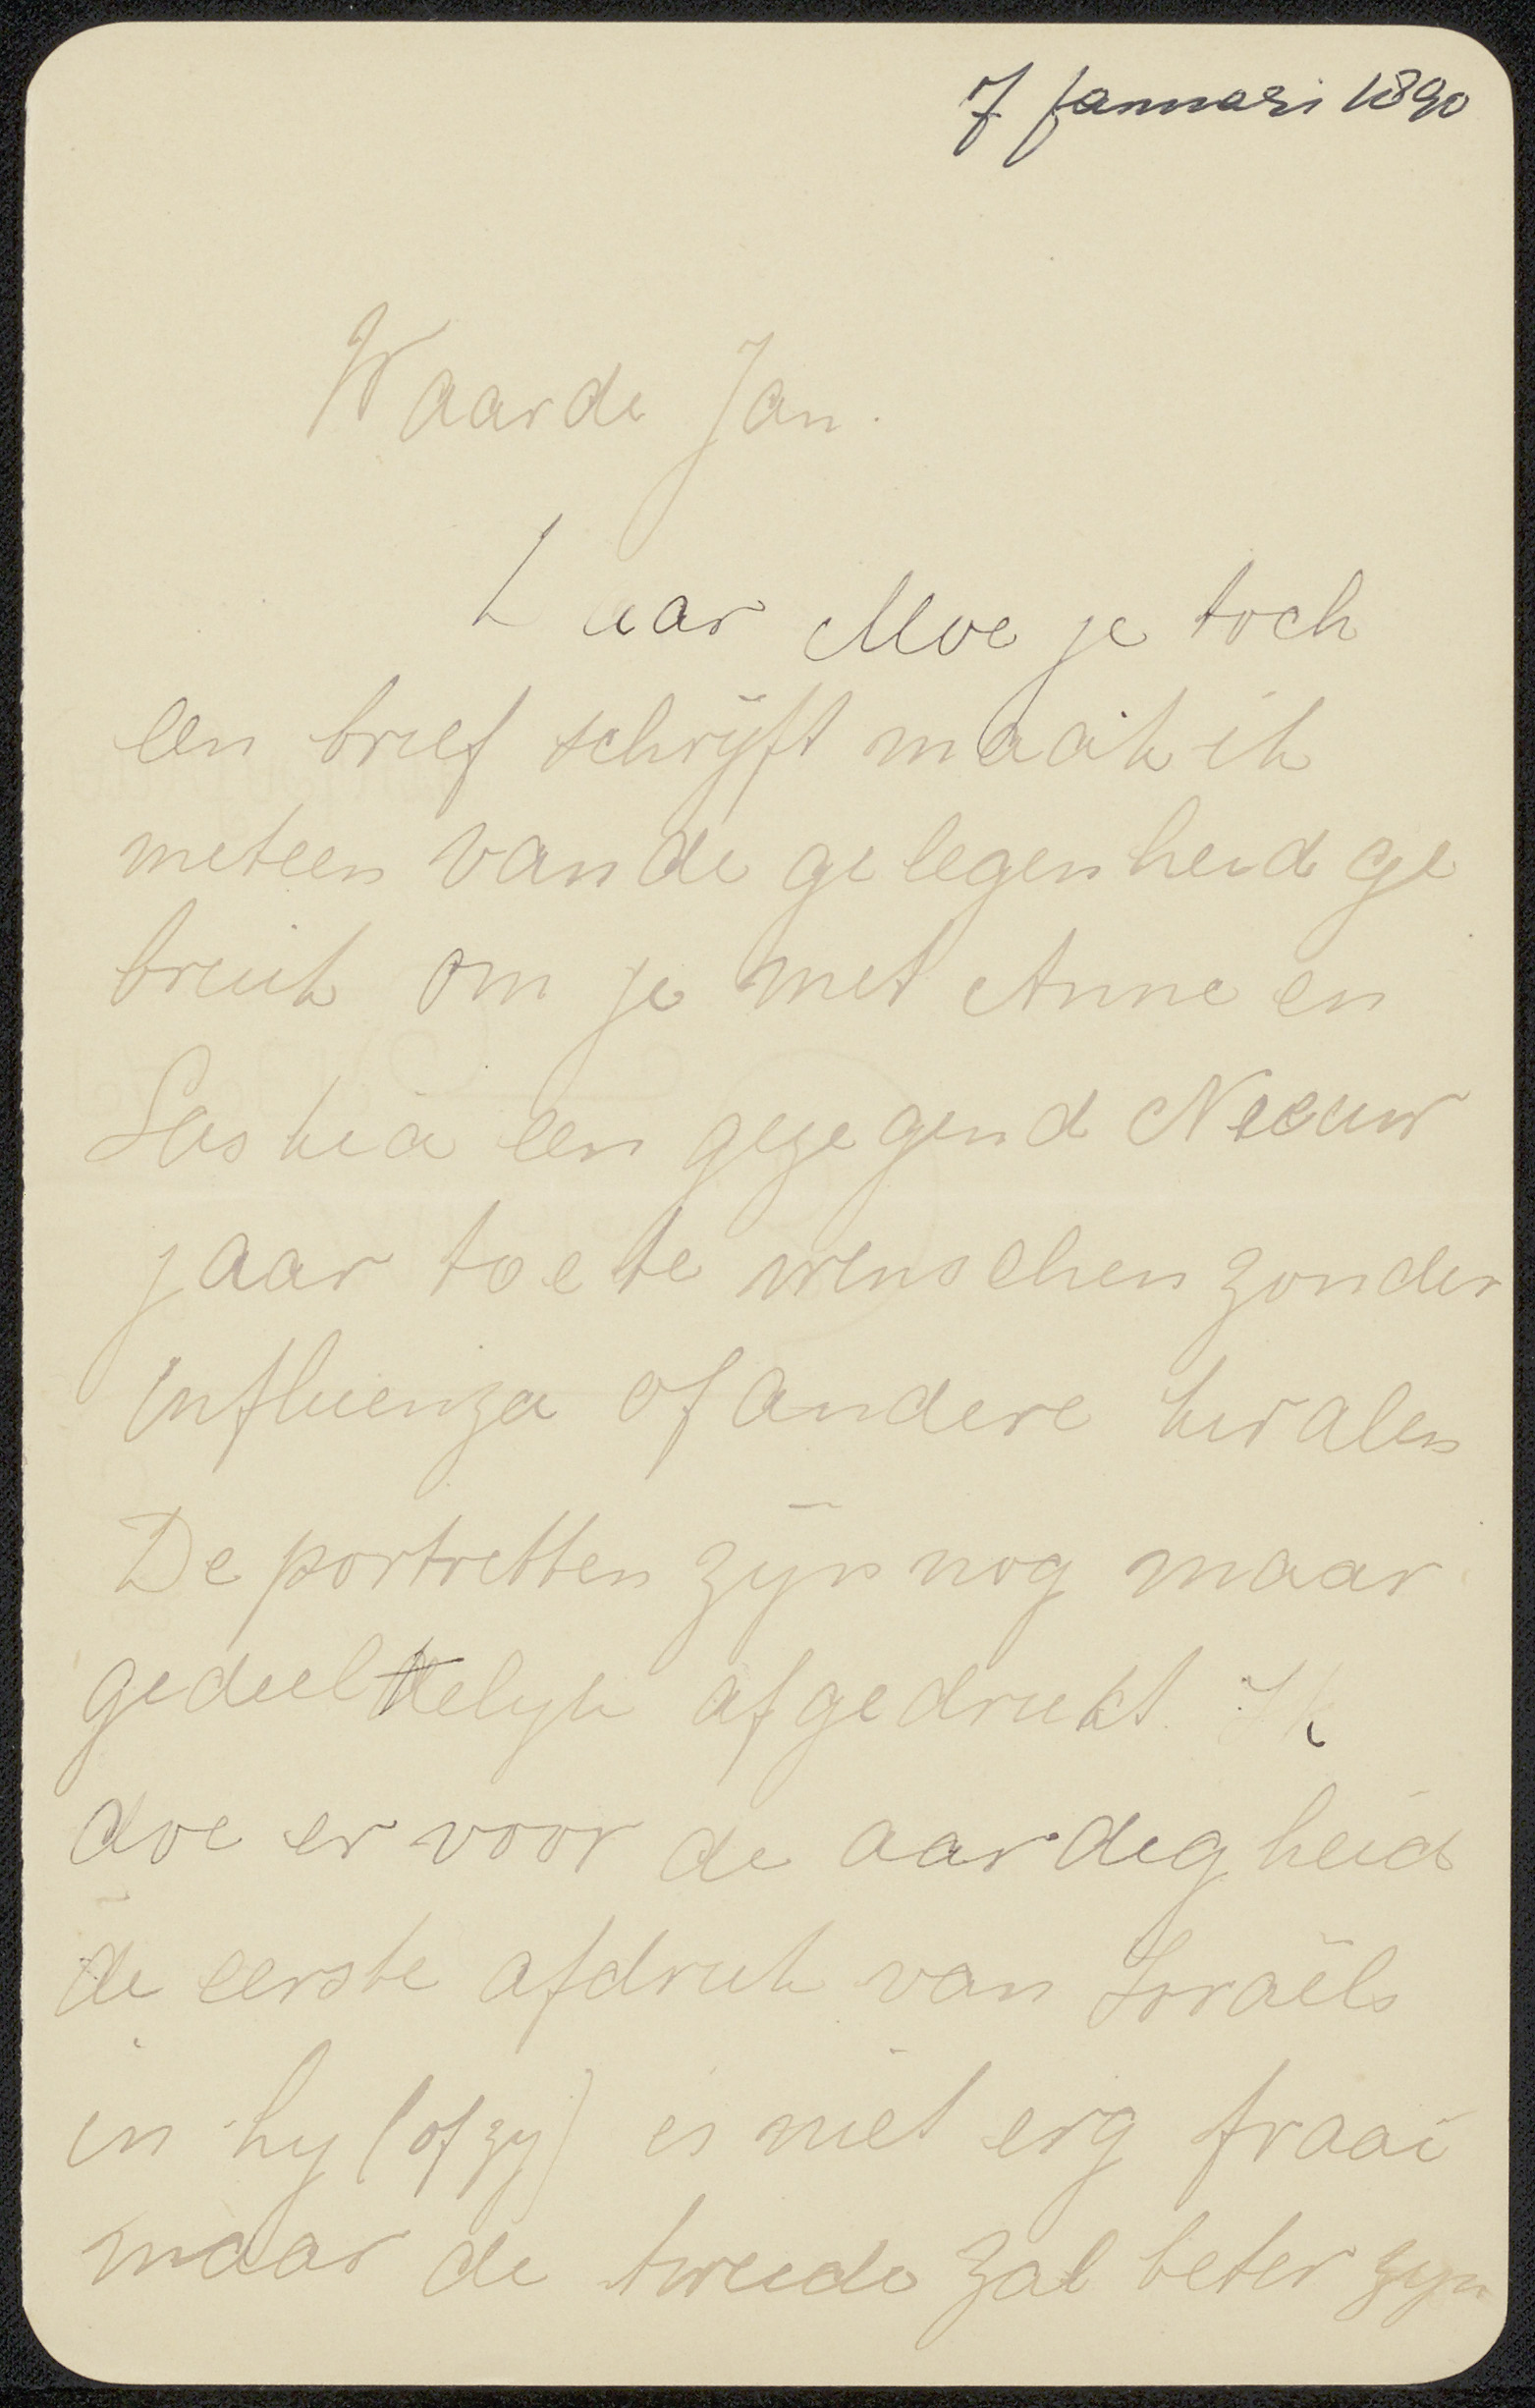 7 Januari 1890
Waarde Jan.
Daar Moe je toch
een brief schrijft maak ik
meteen van de gelegenheid ge
bruik om je met Anne en
Saskia een gezegend Nieuw
jaar toe te wenschen zonder
influenza of andere kwalen
De portretten zijn nog maar
gedeeltelyk afgedrukt. Ik
doe er voor de aardigheid
de eerste afdruk van Israëls
in hy (of zy) is niet erg fraai
maar de tweede zal beter zyn